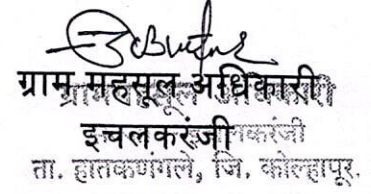 ग्राम महसूल अधिकारी
इचलकरंजी
ता. हातकणंगले, जि. कोल्हापूर.